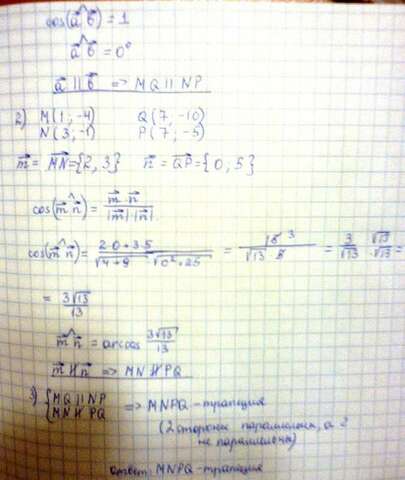 cos(a⃗ ^ b⃗) = 1
a⃗ ^ b⃗ = 0°
a⃗ || b⃗ => MQ || NP
2) M(1; -4) Q(7; -10)
N(3; -1) P(7; -5)
m⃗ = MN⃗ = {2, 3} n⃗ = QP⃗ = {0, 5}
cos(m⃗ ^ n⃗) = m⃗ · n⃗ / |m⃗| · |n⃗|
cos(m⃗ ^ n⃗) = 2·0+3·5 / √4+9 √0²+25 = 15 3 / √13 · 5 = 3 / √13 · √13 / √13 =
= 3√13 / 13
m⃗ ^ n⃗ = arccos 3√13 / 13
m⃗ ∦ n⃗ => MN ∦ PQ
3) { MQ || NP
MN ∦ PQ => MNPQ - трапеция
(2 стороны параллельны, а 2
не параллельны)
Ответ: MNPQ - трапеция